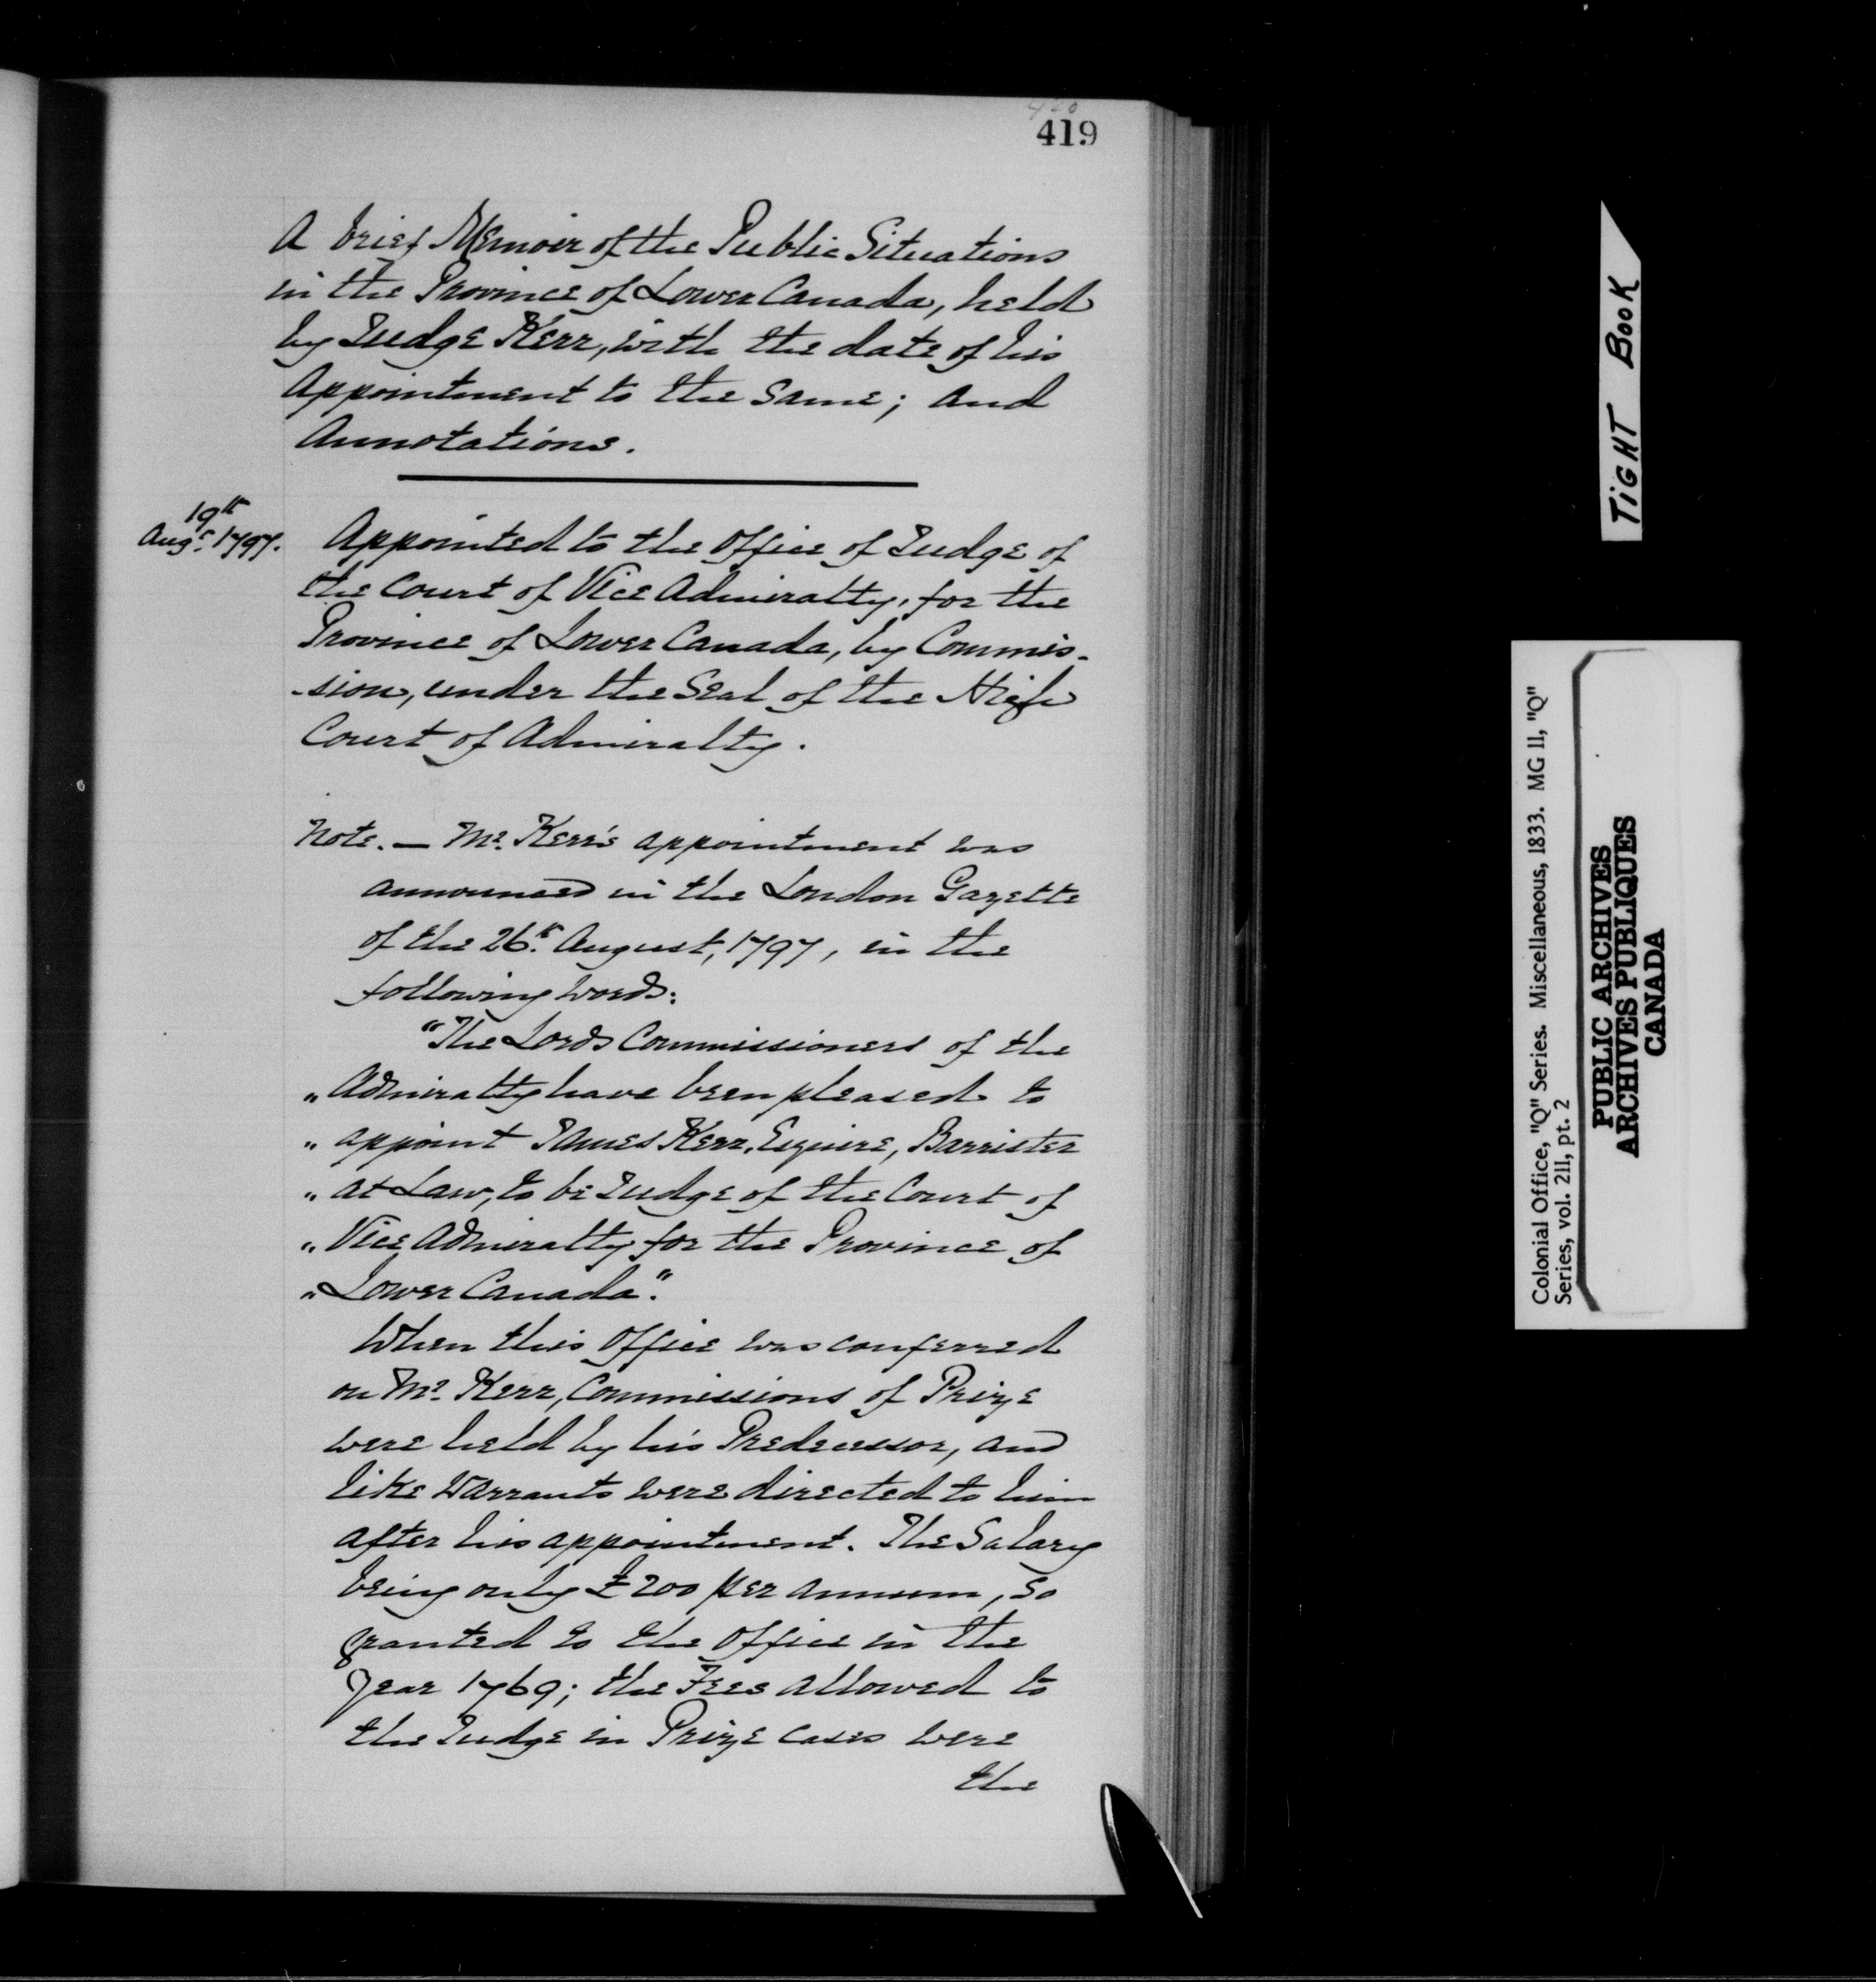 419
A brief Memoir of the Public Situations
in the Province of Lower Canada, held
by Judge Kerr, with the date of his
Appointment to the same; and
Annotations.
19th
Augt. 1797.
Appointed to the Office of Judge of
the Court of Vice Admiralty, for the
Province of Lower Canada, by Commis-
-sion, under the Seal of the High
Court of Admiralty.
Note. — Mr. Kerr's appointment was
announced in the London Gazette
of the 26th. August, 1797, in the
following words:
"The Lords Commissioners of the
" Admiralty have been pleased to
" appoint James Kerr, Esquire, Barrister
" at Law, to be Judge of the Court of
" Vice Admiralty for the Province of
" Lower Canada".
When this Office was conferred
on Mr. Kerr, Commissions of Prize
were held by his Predecessor, and
like Warrants were directed to him
after his appointment. The Salary
being only £200 per annum, so
granted to the Office in the
year 1769; the Fees allowed to
the Judge in Prize cases were
the
TIGHT BOOK
Colonial Office, "Q" Series. Miscellaneous, 1833. MG 11, "Q"
Series, vol. 211, pt. 2
PUBLIC ARCHIVES
ARCHIVES PUBLIQUES
CANADA